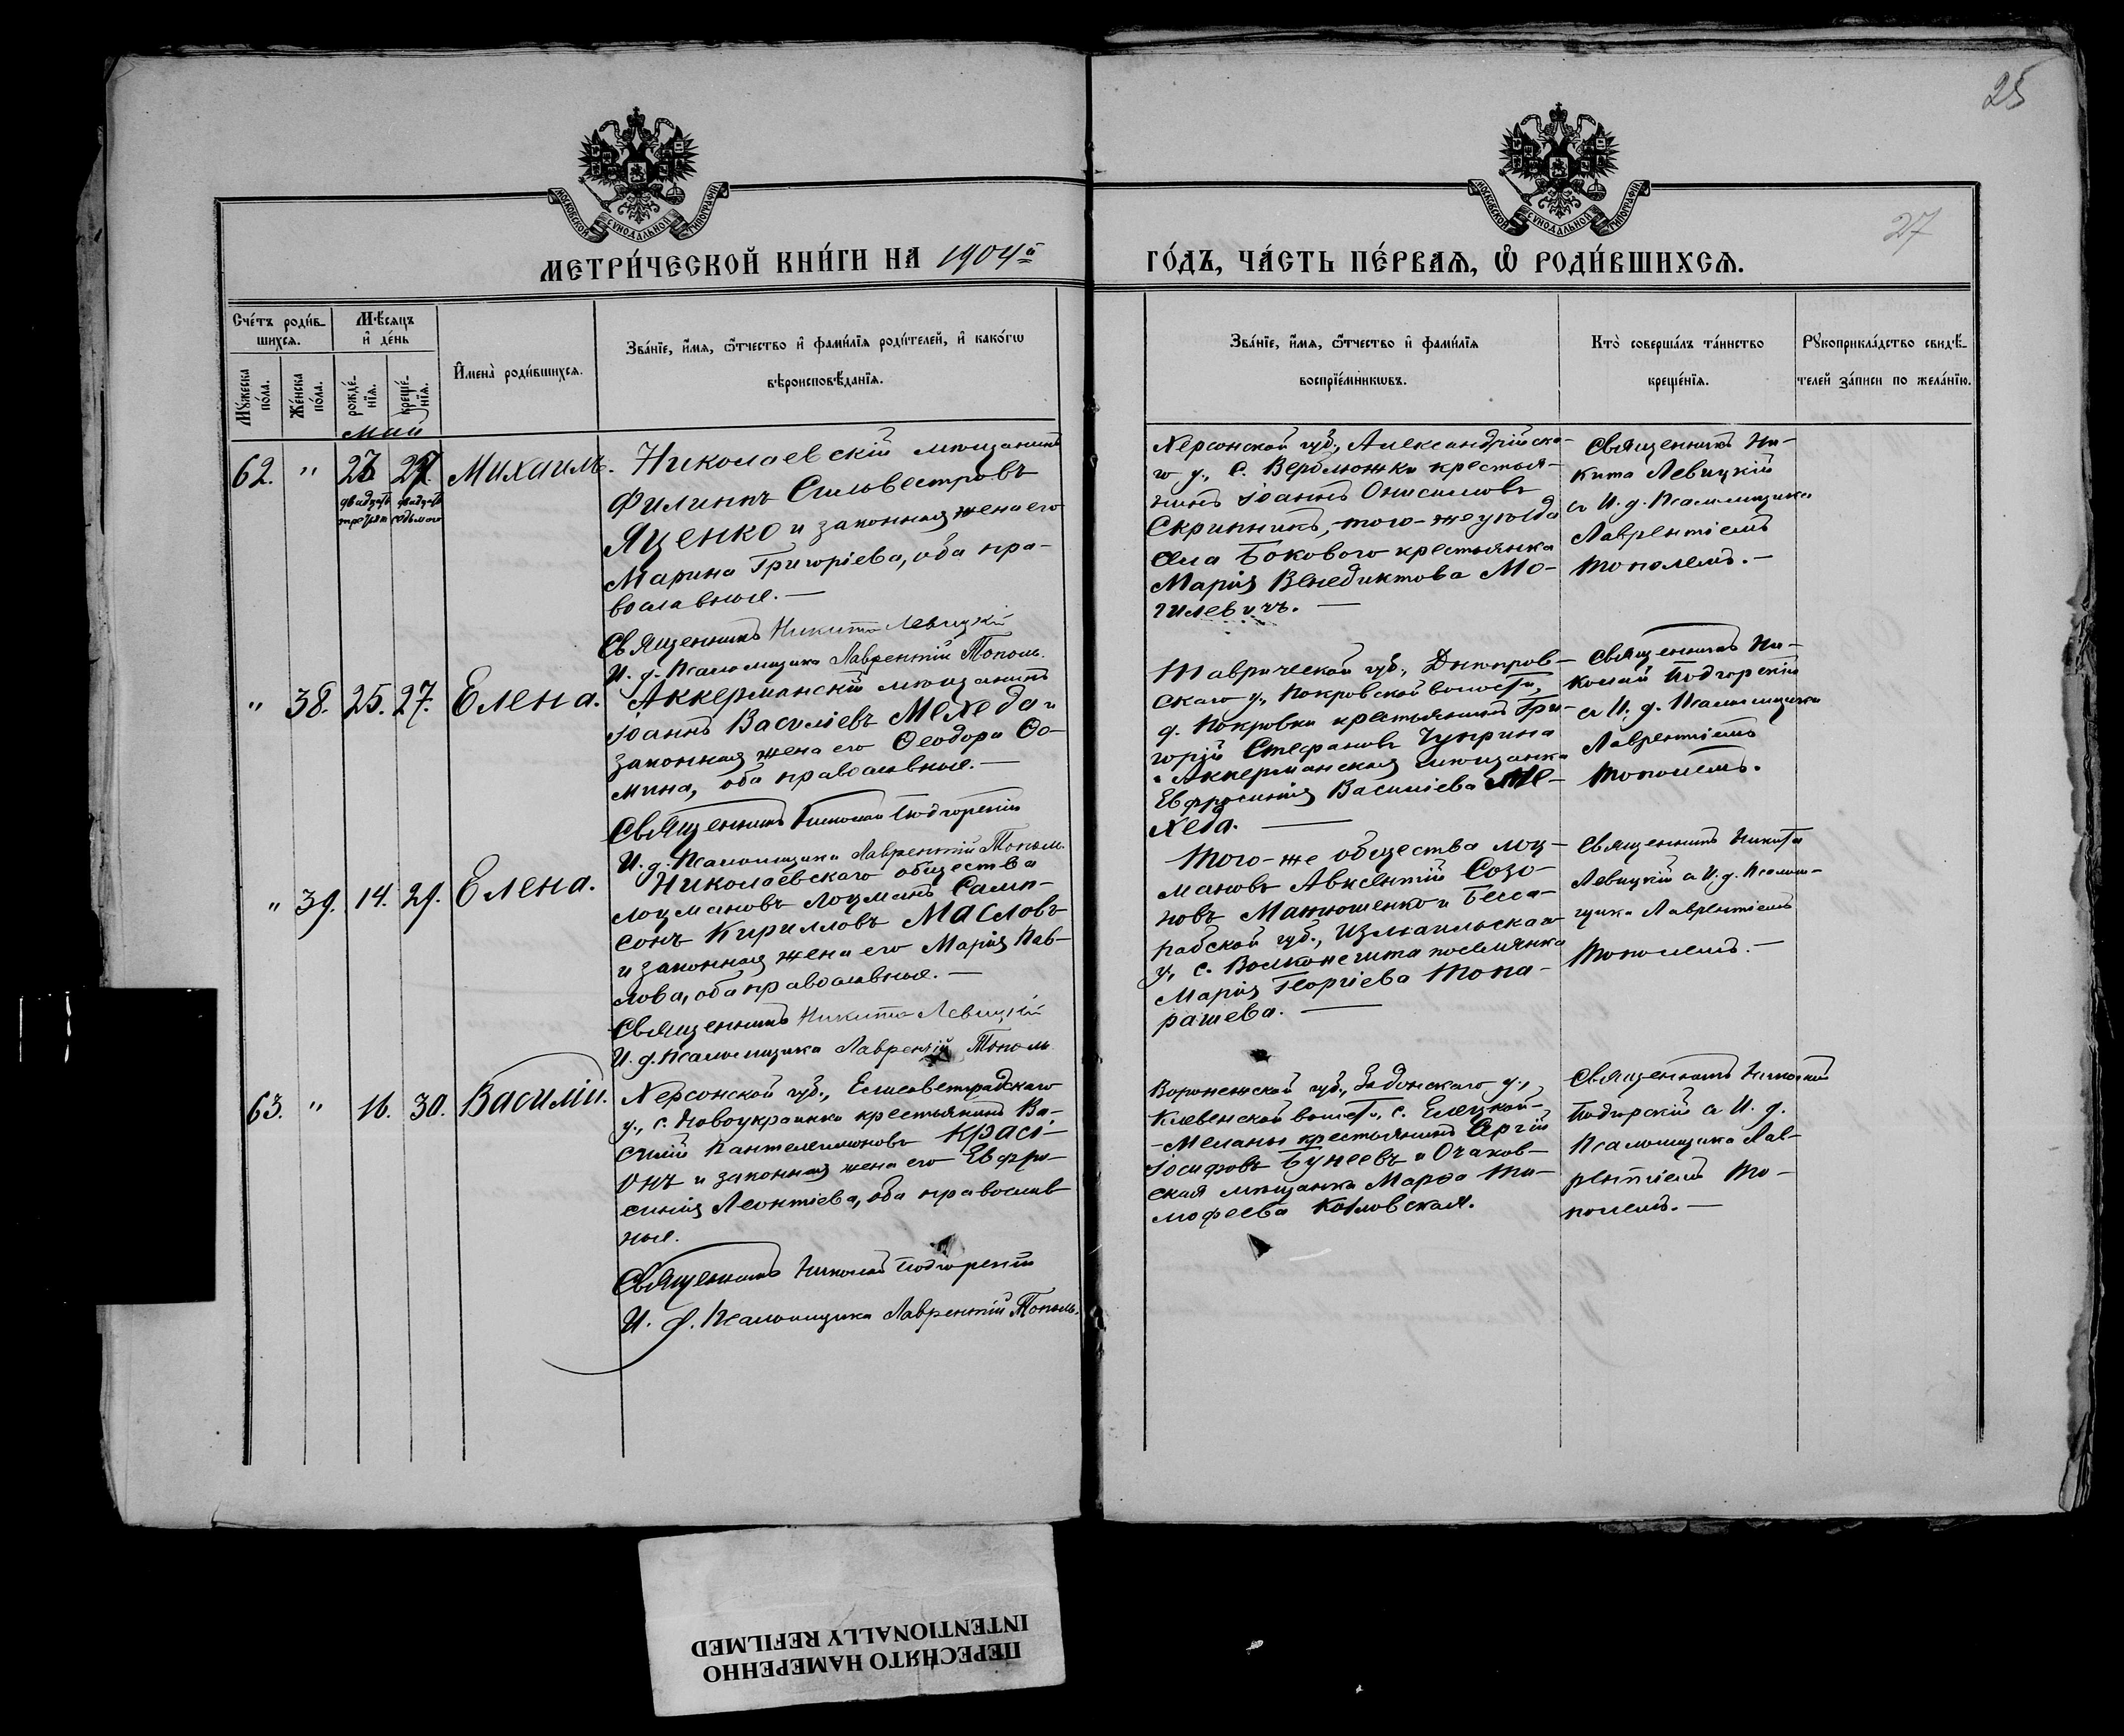 25
27
МОСКОВСКОЙ СѴНОДАЛЬНОЙ ТИПОГРАФІИ
МОСКОВСКОЙ СѴНОДАЛЬНОЙ ТИПОГРАФІИ
МЕТРИ́ЧЕСКОЙ КНИ́ГИ НА 1904й
ГО́ДЪ, ЧА́СТЬ ПЕ́РВАѦ, Ѡ҆ РОДИ́ВШИХСѦ.
Сче́тъ роди́в-
шихсѧ.
Мꙋ́жеска по́ла.
Же́нска по́ла.
Мѣ́сѧцъ
и҆ де́нь
рожде́-
нїѧ.
креще́-
нїѧ.
И҆мена̀ роди́вшихсѧ.
Зва́нїе, и҆́мѧ, ѻ҆́тчество и҆ фами́лїѧ роди́телей, и҆ како́гѡ
вѣроисповѣ́данїѧ.
Зва́нїе, и҆́мѧ, ѻ҆́тчество и҆ фами́лїѧ
воспрїе́мникѡвъ.
Кто̀ соверша́лъ та́инство
креще́нїѧ.
Рꙋкоприкла́дство свидѣ́-
телей за́писи по жела́нїю.
Май
62. " 23 27. Михаилъ.
двадцать третьяго
двадцать седьмого
Николаевскій мѣщанинъ
Филиппъ Сильвестровъ
Яценко и законная жена его
Марина Григоріева, оба пра-
вославные. —
Священникъ Никита Левицкій
И. д. Псаломщика Лаврентій Тополь.
Херсонской губ., Александрійска-
го у., с. Верблюжки крестья-
нинъ Іоаннъ Онисимовъ
Скрипникъ, того-же уѣзда
села Бокового крестьянка
Марія Венедиктова Мо-
гилевичъ. —
Священникъ Ни-
кита Левицкій
съ И. д. Псаломщика
Лаврентіемъ
Тополемъ. —
" 38. 25. 27. Елена.
Аккерманскій мѣщанинъ
Іоаннъ Василіевъ Мехеда и
законная жена его Ѳеодора Ѳо-
мина, оба православные. —
Священникъ Николай Подгорскій
И. д. Псаломщика Лаврентій Тополь.
Таврической губ., Днѣпров-
скаго у., Покровской волости,
д. Покровки крестьянинъ Гри-
горій Стефановъ Чуприна
и Аккерманская мѣщанка
Евфросинія Василіева Ме-
хеда. —
Священникъ Ни-
колай Подгорскій
съ И. д. Псаломщика
Лаврентіемъ
Тополемъ.
" 39. 14. 29. Елена.
Николаевскаго общества
лоцмановъ лоцманъ Самп-
сонъ Кирилловъ Масловъ
и законная жена его Марія Пав-
лова, оба православные. —
Священникъ Никита Левицкій
И. д. Псаломщика Лаврентій Тополь
Того-же общества лоц-
мановъ Авксентій Созо-
новъ Матюшенко и Бесса-
рабской губ., Измаильскаго
у., с. поселянка
Марія Георгіева Топа-
рашева. —
Священникъ Никита
Левицкій съ И. д. Псалом-
щика Лаврентіемъ
Тополемъ. —
63. " 16. 30. Василій.
Херсонской губ., Елисаветградскаго
у., с. Новоукраинки крестьянинъ Ва-
силій Пантелеимоновъ Красі-
онъ и законная жена его Евфро-
синія Леонтіева, оба православ
ные.
Священникъ Николай Подгорскій
И. д. Псаломщика Лаврентій Тополь.
Воронежской губ., Задонскаго у.,
волости, с. Елецкой-
крестьянинъ Сергій
Іосифовъ Бунеевъ и Очаков-
ская мѣщанка Марѳа Ти-
мофеева Козловская.
Священникъ Николай
Подгорскій съ И. д.
Псаломщика Лав-
рентіемъ То-
полемъ. —
ПЕРЕСНЯТО НАМЕРЕННО
INTENTIONALLY REFILMED